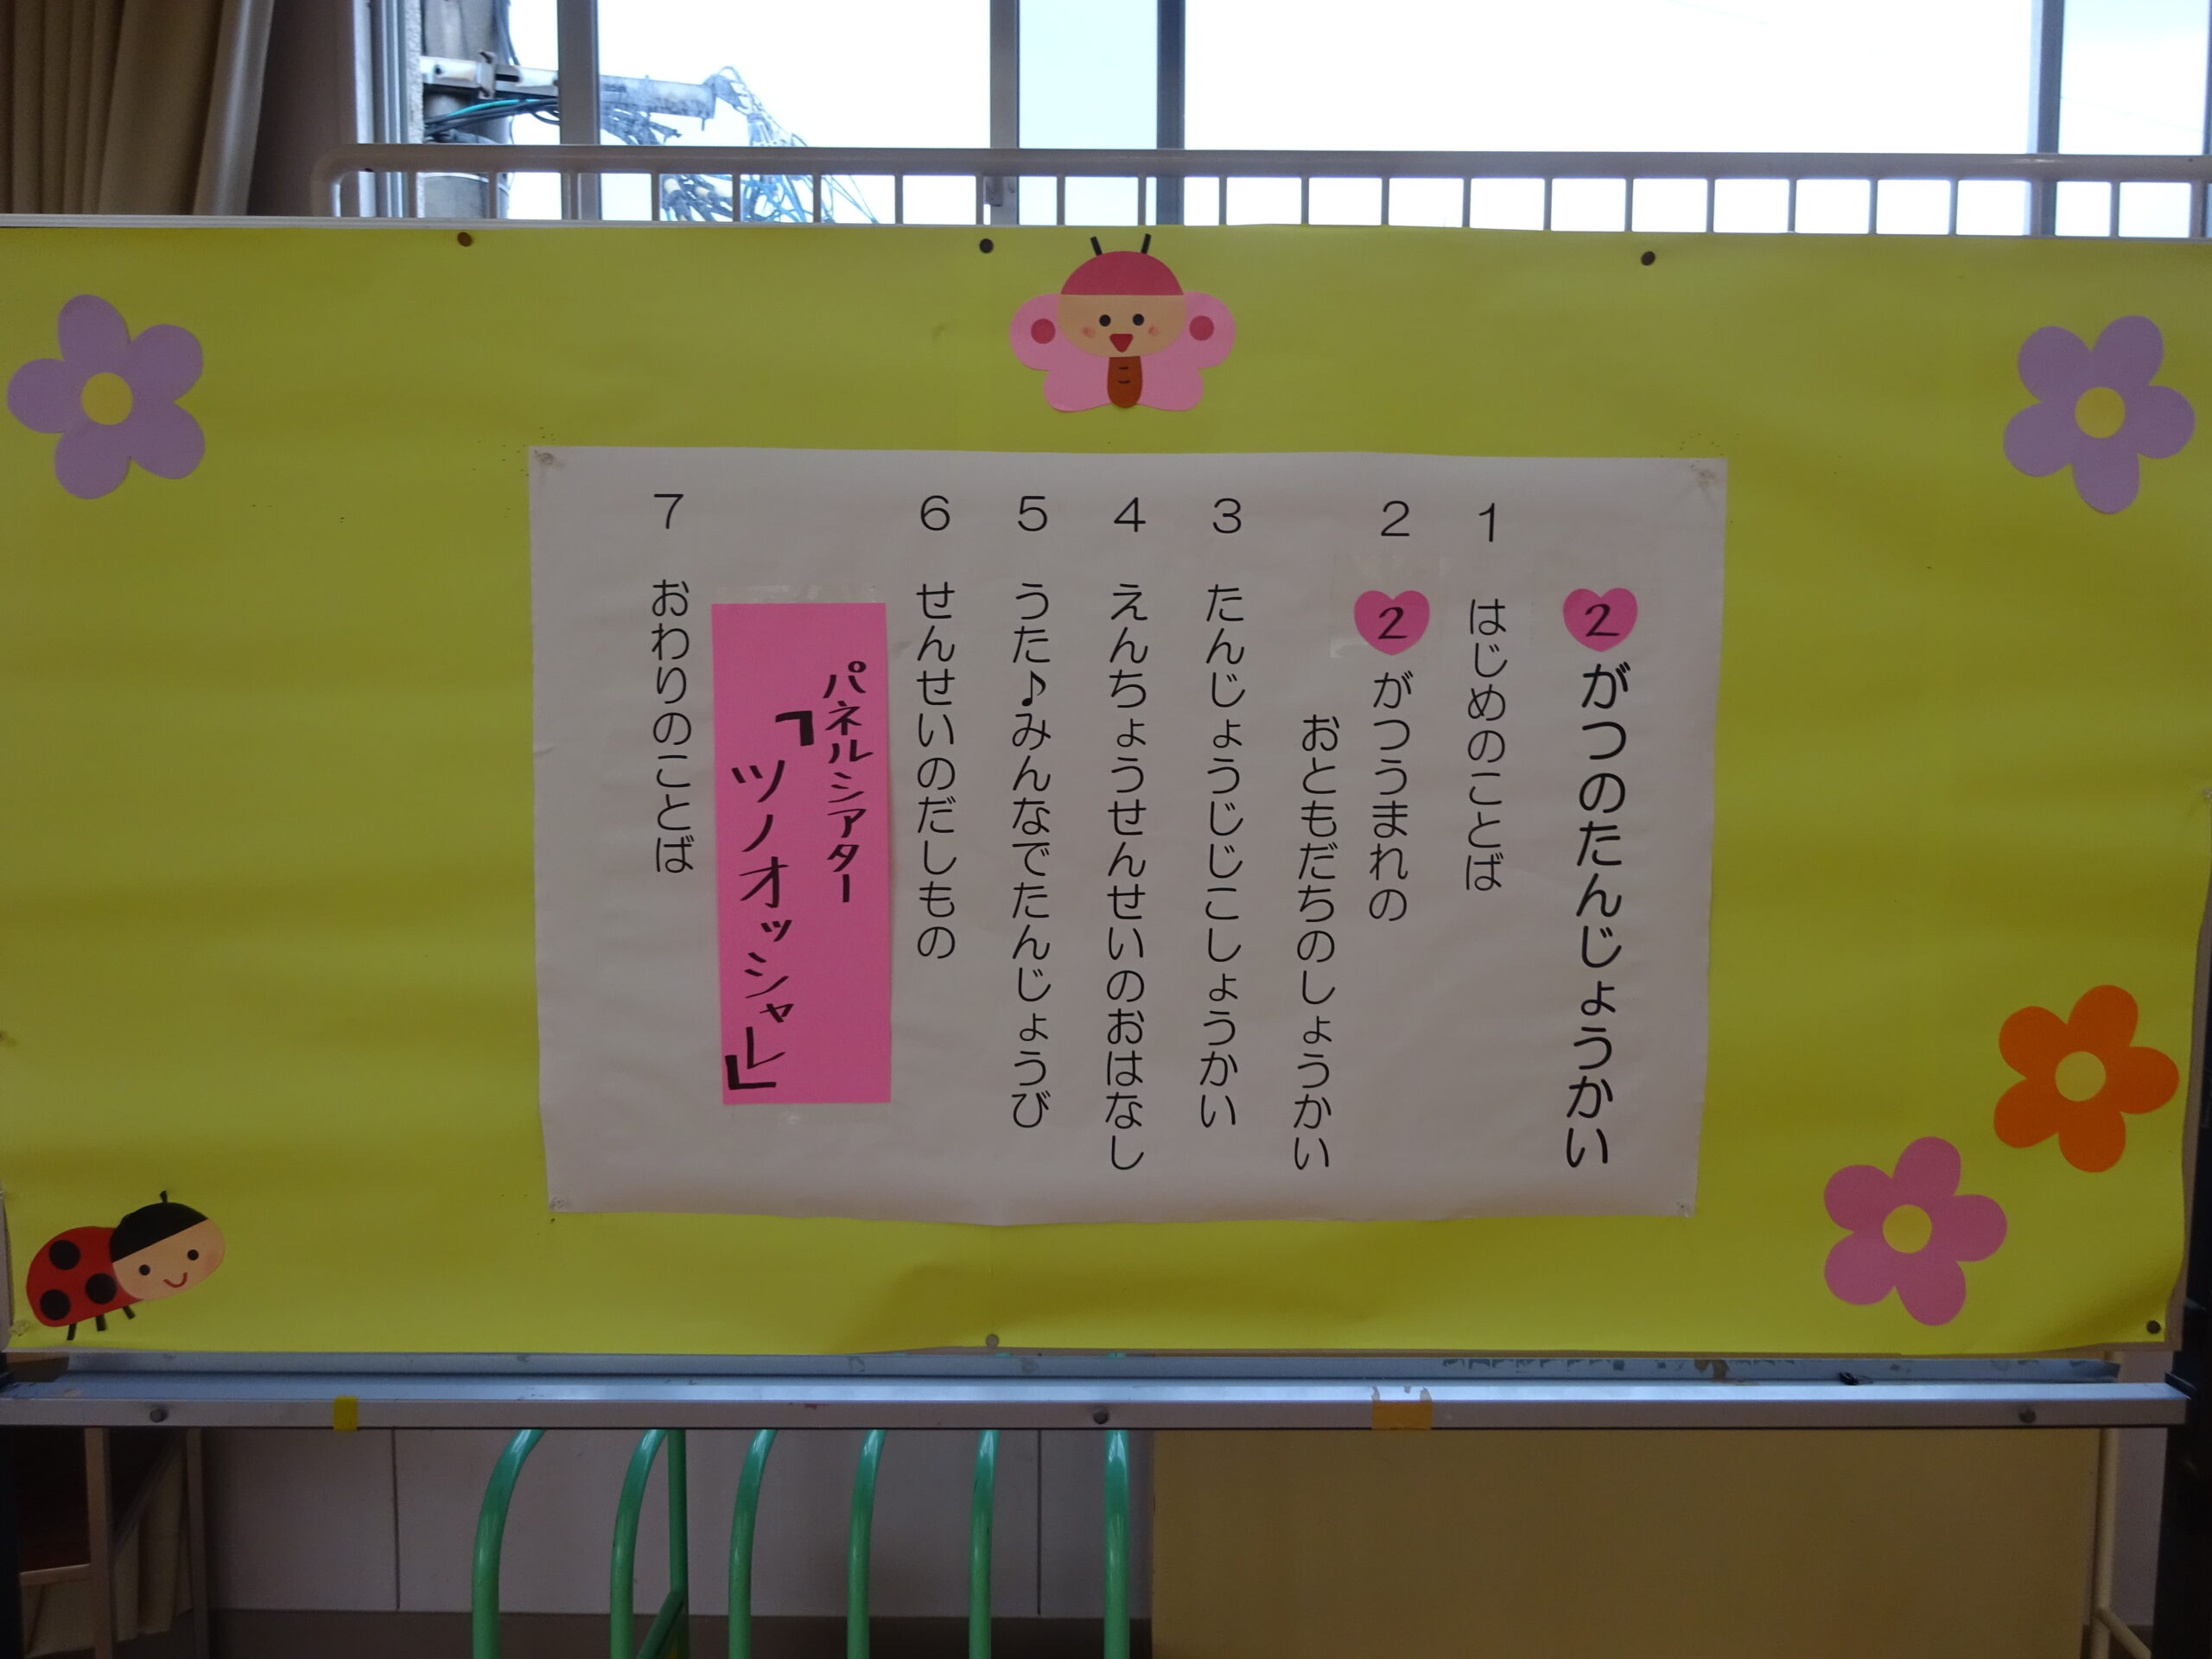 2がつのたんじょうかい
1 はじめのことば
2 2がつうまれの
おともだちのしょうかい
3 たんじょうじじこしょうかい
4 えんちょうせんせいのおはなし
5 うた♪みんなでたんじょうび
6 せんせいのだしもの
パネルシアター
「ツノオッシャレ」
7 おわりのことば